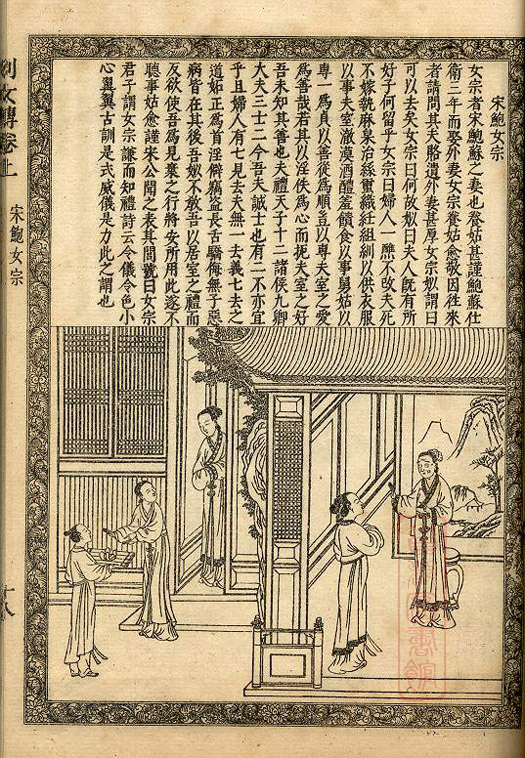 宋鮑女宗
女宗者宋鮑蘇之妻也養姑甚謹鮑蘇仕
衛三年而娶外妻女宗養姑愈敬因往來
者請問其夫賂遺外妻甚厚女宗姒謂曰
可以去矣女宗曰何故姒曰夫人既有所
好子何留乎女宗曰婦人一醮不改夫死
不嫁執麻枲治絲繭織紝組紃以供衣服
以事夫室澈漠酒醴羞饋食以事舅姑以
專一為貞以善從為順豈以專夫室之愛
為善哉若其以淫佚為心而扼夫室之好
吾未知其善也夫禮天子十二諸侯九卿
大夫三士二今吾夫誠士也有二不亦宜
乎且婦人有七見去夫無一去義七去之
道妬正為首淫僻竊盜長舌驕侮無子惡
病皆在其後吾姒不教吾以居室之禮而
反欲使吾為見棄之行將安所用此遂不
聽事姑愈謹宋公聞之表其閭號曰女宗
君子謂女宗謙而知禮詩云令儀令色小
心翼翼古訓是式威儀是力此之謂也
列女傳卷上
宋鮑女宗
十八